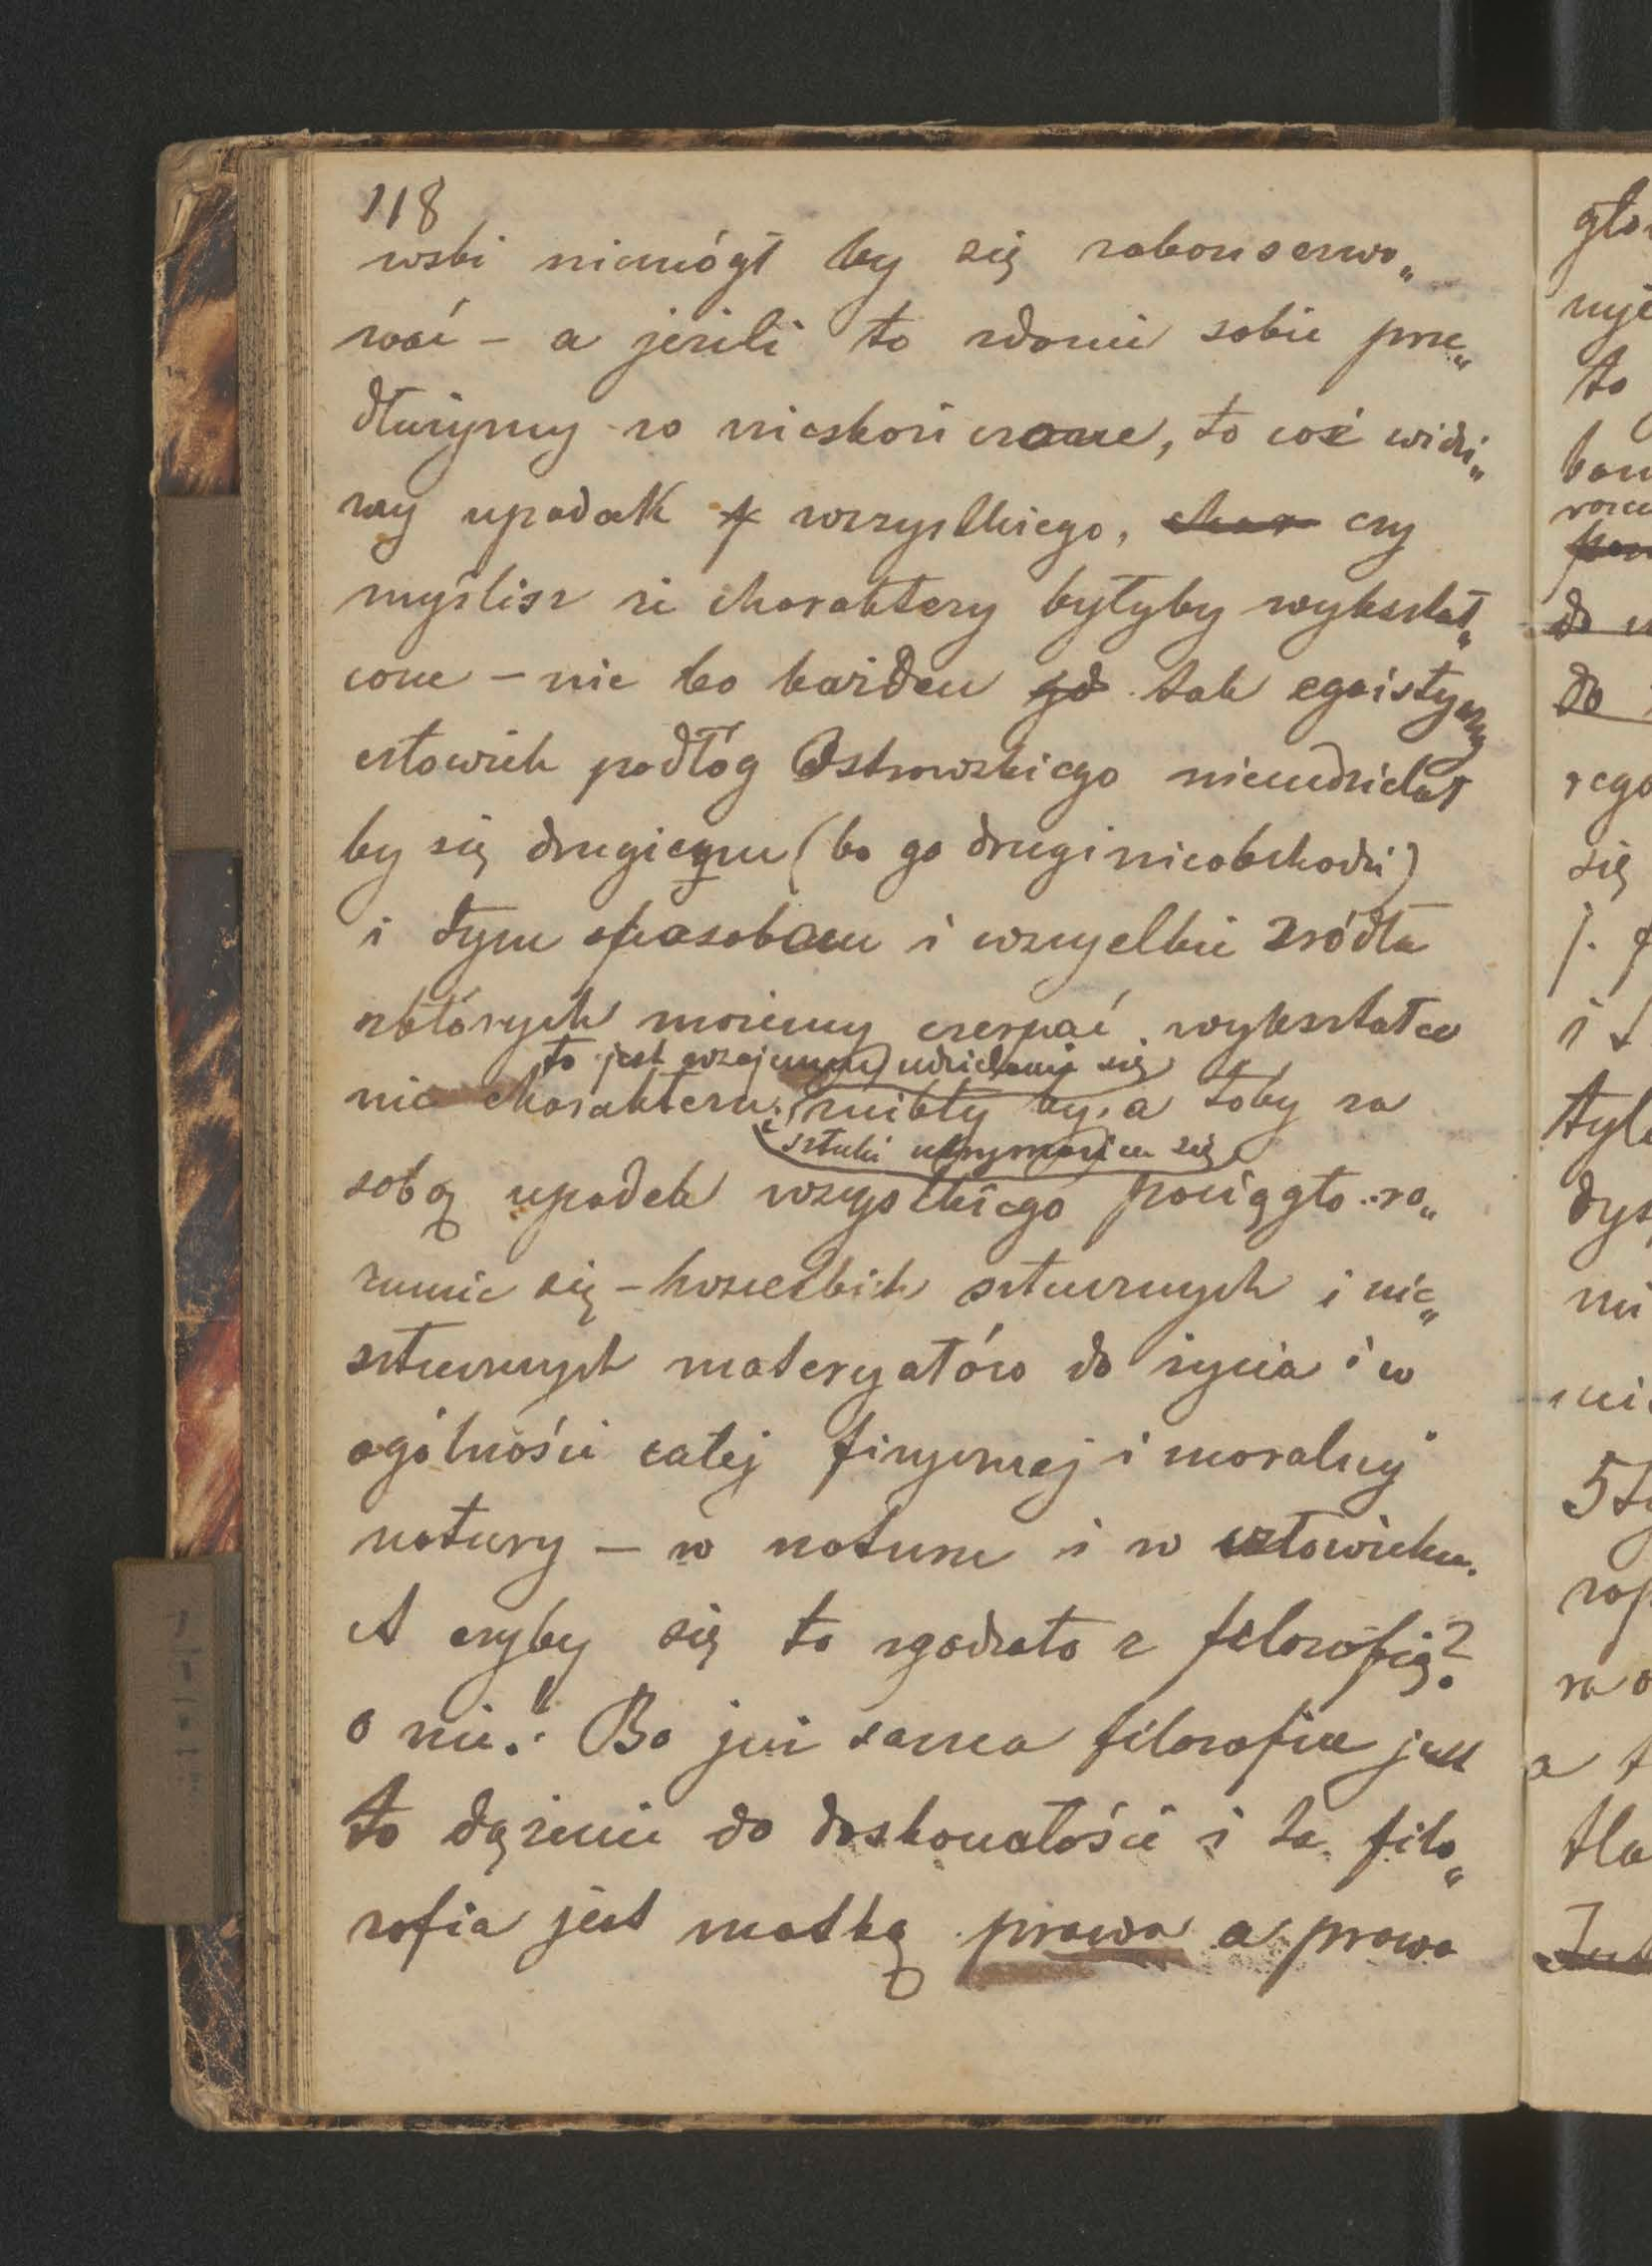 118
wski niemógł by się zakonserwo„
wać – a jeżeli to zdanie sobie prze„
dłużymy w nieskończone, to cóż widzi„
my upadek wszystkiego, char czy
myślisz że charaktery byłyby wykształ„
cone – nie bo każden gd tak egoistyczny
człowiek podłóg Ostrowskiego nieudzielał
by się drugiemu (bo go drugi nieobchodzi)
i tym sposobem i wszyelkie źródła
zktórych możemy czerpać wykształce
to jest wzajemne udzielanie się
nie charakteru znikły by, a toby za
sztuki utrzymania się
sobą upadek wszystkiego pociągło ro„
zumie się – wszelkich sztucznych i nie„
sztucznych materyałów do życia i w
ogólności całej fizycznej i moralnej
natury – w naturze i w człowieku.
A czyby się to zgodzało z filozofią?
o nie! Bo już sama filozofia jest
to dążenie do doskonałości i ta filo„
zofia jest matką prawa a prawo
głow
to
do
się
i